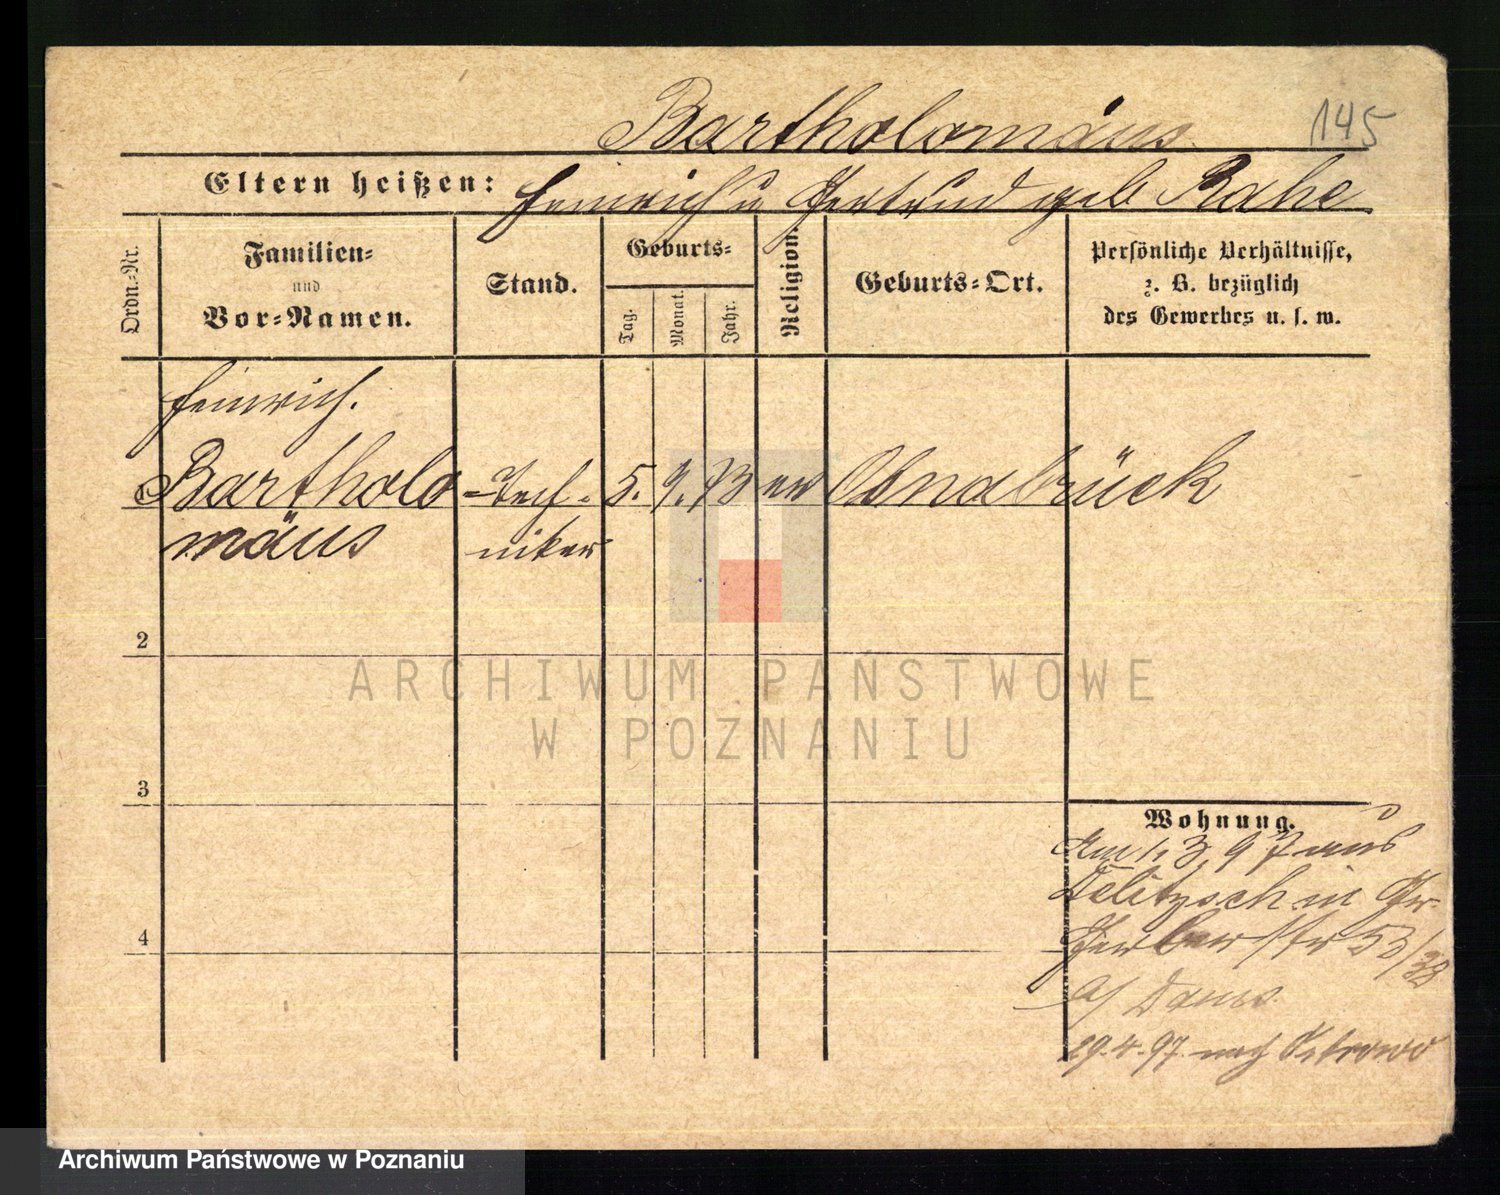 Bartholomäus
145
Eltern heißen: Heinrich u Gertrud geb Rahe
Ordn.-Nr.
Familien-
und
Vor-Namen.
Stand.
Geburts-
Tag.
Monat.
Jahr.
Religion.
Geburts-Ort.
Persönliche Verhältnisse,
z. B. bezüglich
des Gewerbes u. s. w.
Heinrich.
1 Bartholo- Tech- 5. 9. 73 ev Osnabrück
mäus niker
2
3
4
Wohnung.
Am 1. 3. 97 aus
Delitzsch in
Gerberstr 53/38
29.4.97. nach Ostrowo
ARCHIWUM PAŃSTWOWE
W POZNANIU
Archiwum Państwowe w Poznaniu